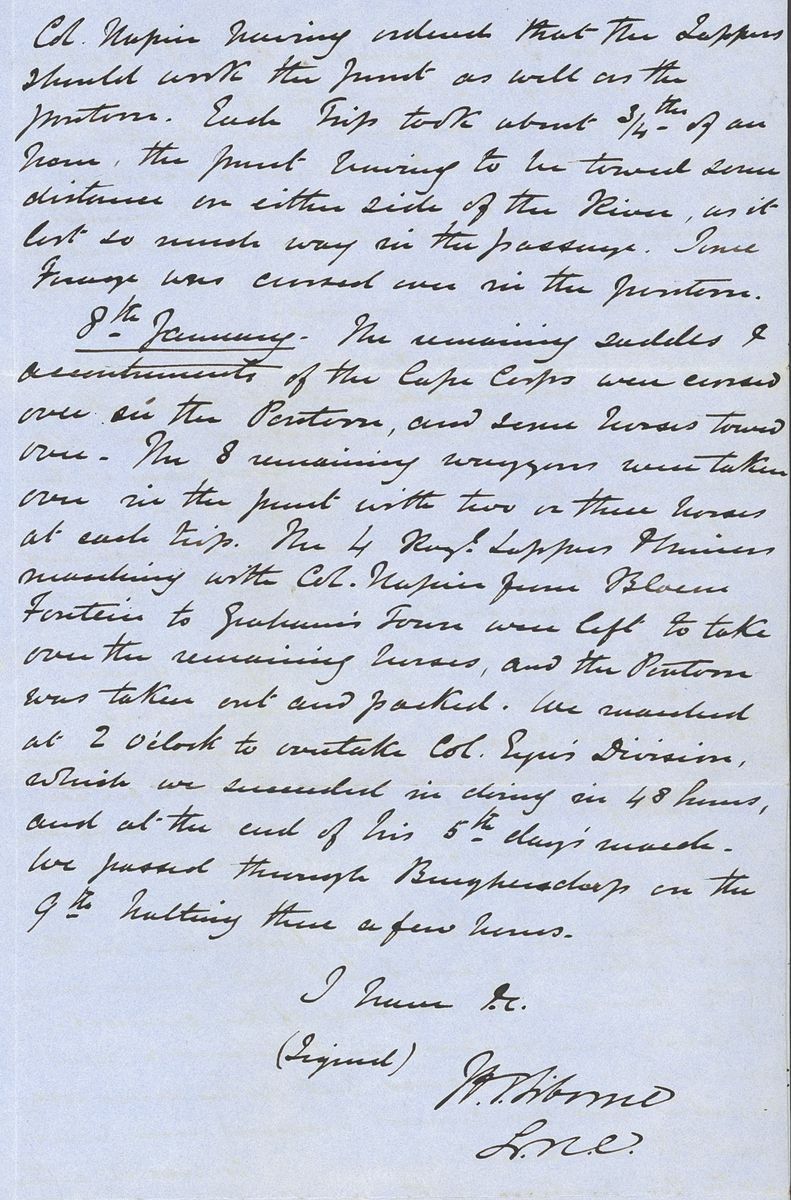 Col. Napier having ordered that the Sappers
should work the punt as well as the
pontoon. Each Trip took about 3/4ths of an
hour, the punt having to be towed some
distance on either side of the River, as it
lost so much way in the passage. Some
Forage was crossed over in the pontoon.
8th January. The remaining saddles &
accoutrements of the Cape Corps were crossed
over in the Pontoon, and some horses towed
over - The 8 remaining waggons were taken
over in the punt with two or three horses
at each trip. The 4 Royl. Sappers & Miners
marching with Col. Napier from Bloem
Fontein to Graham's Town were left to take
over the remaining horses, and the Pontoon
was taken out and packed. We marched
at 2 o'clock to overtake Col. Eyre's Division,
which we succeeded in doing in 48 hours,
and at the end of his 5th day's march -
We passed through Burghersdorp on the
9th halting there a few hours -
I have &c.
(Signed)
W. Siborne
Lt. R.E.